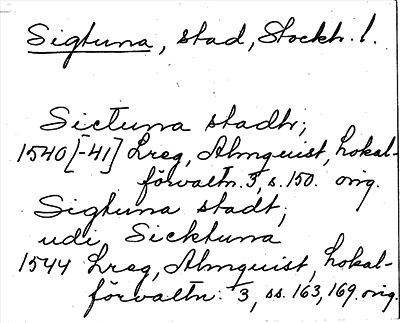 Sigtuna, stad, Stockh. l.
Sictuna stadtr;
1540[-41] Lreg, Almquist, Lokal-
förvaltn. 3, s. 150. orig.
Sigtuna stadt;
udi Sicktuna
1544 Lreg, Almquist, Lokal-
förvaltn. 1/3, ss. 163, 169. orig.